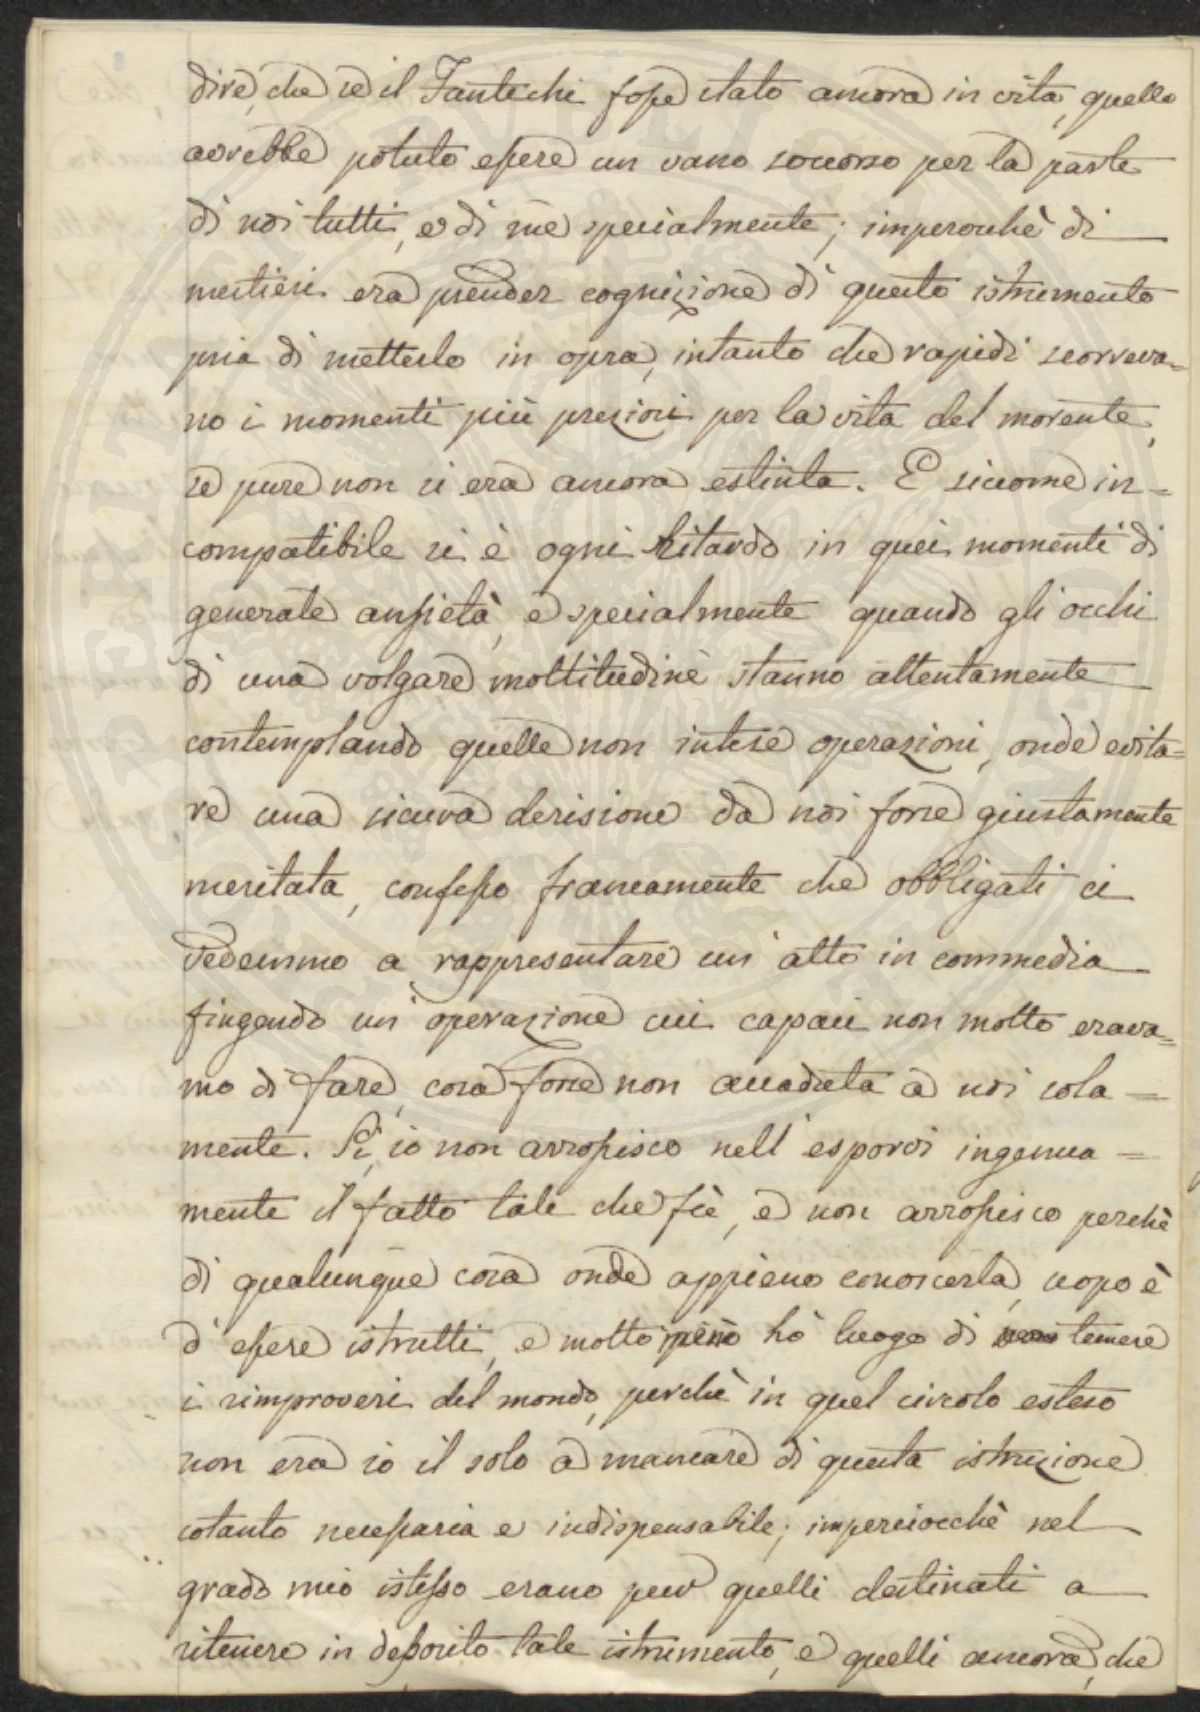 dire, che se il Fantechi fosse stato ancora in vita, quello
avrebbe potuto essere un vano soccorso per la parte
di noi tutti, e di me specialmente; imperocchè di
mestieri era prender cognizione di questo istrumento
pria di metterlo in opra, intanto che rapidi scorreva=
no i momenti più preziosi per la vita del morente,
se pure non si era ancora estinta. E siccome in=
compatibile si è ogni ritardo in quei momenti di
generale ansietà, e specialmente quando gli occhi
di una volgare moltitudine stanno attentamente
contemplando quelle non intese operazioni, onde evita=
re una sicura derisione da noi forse giustamente
meritata, confesso francamente che obbligati ci
vedemmo a rappresentare un'atto in commedia
fingendo un'operazione cui capaci non molto erava=
mo di fare, cosa forse non accaduta a noi sola=
mente. Sì, io non arrossisco nell'esporvi ingenua=
mente il fatto tale che fù, e non arrossisco perchè
di qualunque cosa onde appieno conoscerla, uopo è
d'essere istrutti, e molto meno hò luogo di temere
i rimproveri del mondo, perchè in quel circolo esteso
non era io il solo a mancare di questa istruzione
cotanto necessaria e indispensabile; imperciocchè nel
grado mio istesso erano pur quelli destinati a
ritenere in deposito tale istrumento, e quelli ancora, che